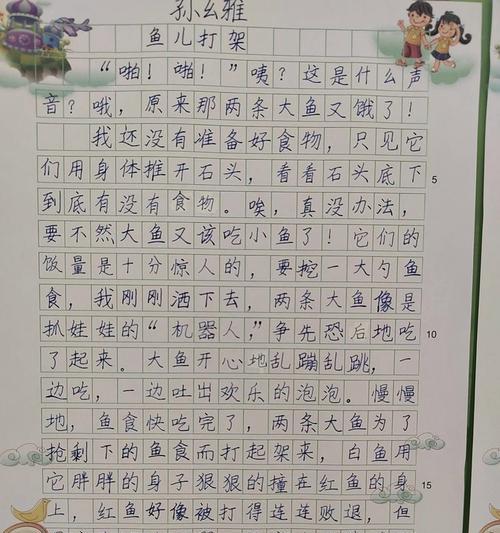 孙幺雅
鱼儿打架
“啪！啪！”咦？这是什么声
音？哦，原来那两条大鱼又饿了！
我还没有准备好食物，只见它
们用身体推开石头，看看石头底下
5
到底有没有食物。唉，真没办法，
要不然大鱼又该吃小鱼了！它们的
饭量是十分惊人的，要挖一大勺鱼
食，我刚刚洒下去，两条大鱼像是
抓娃娃的“机器人，”争先恐后地吃
10
了起来。大鱼开心地乱蹦乱跳，一
边吃，一边吐出欢乐的泡泡。慢慢
地，鱼食快吃完了，两条大鱼为了
抢剩下的鱼食而打起架来，白鱼用
它胖胖的身子狠狠的撞在红鱼的身
15
上，红鱼好像被打得连连败退，但